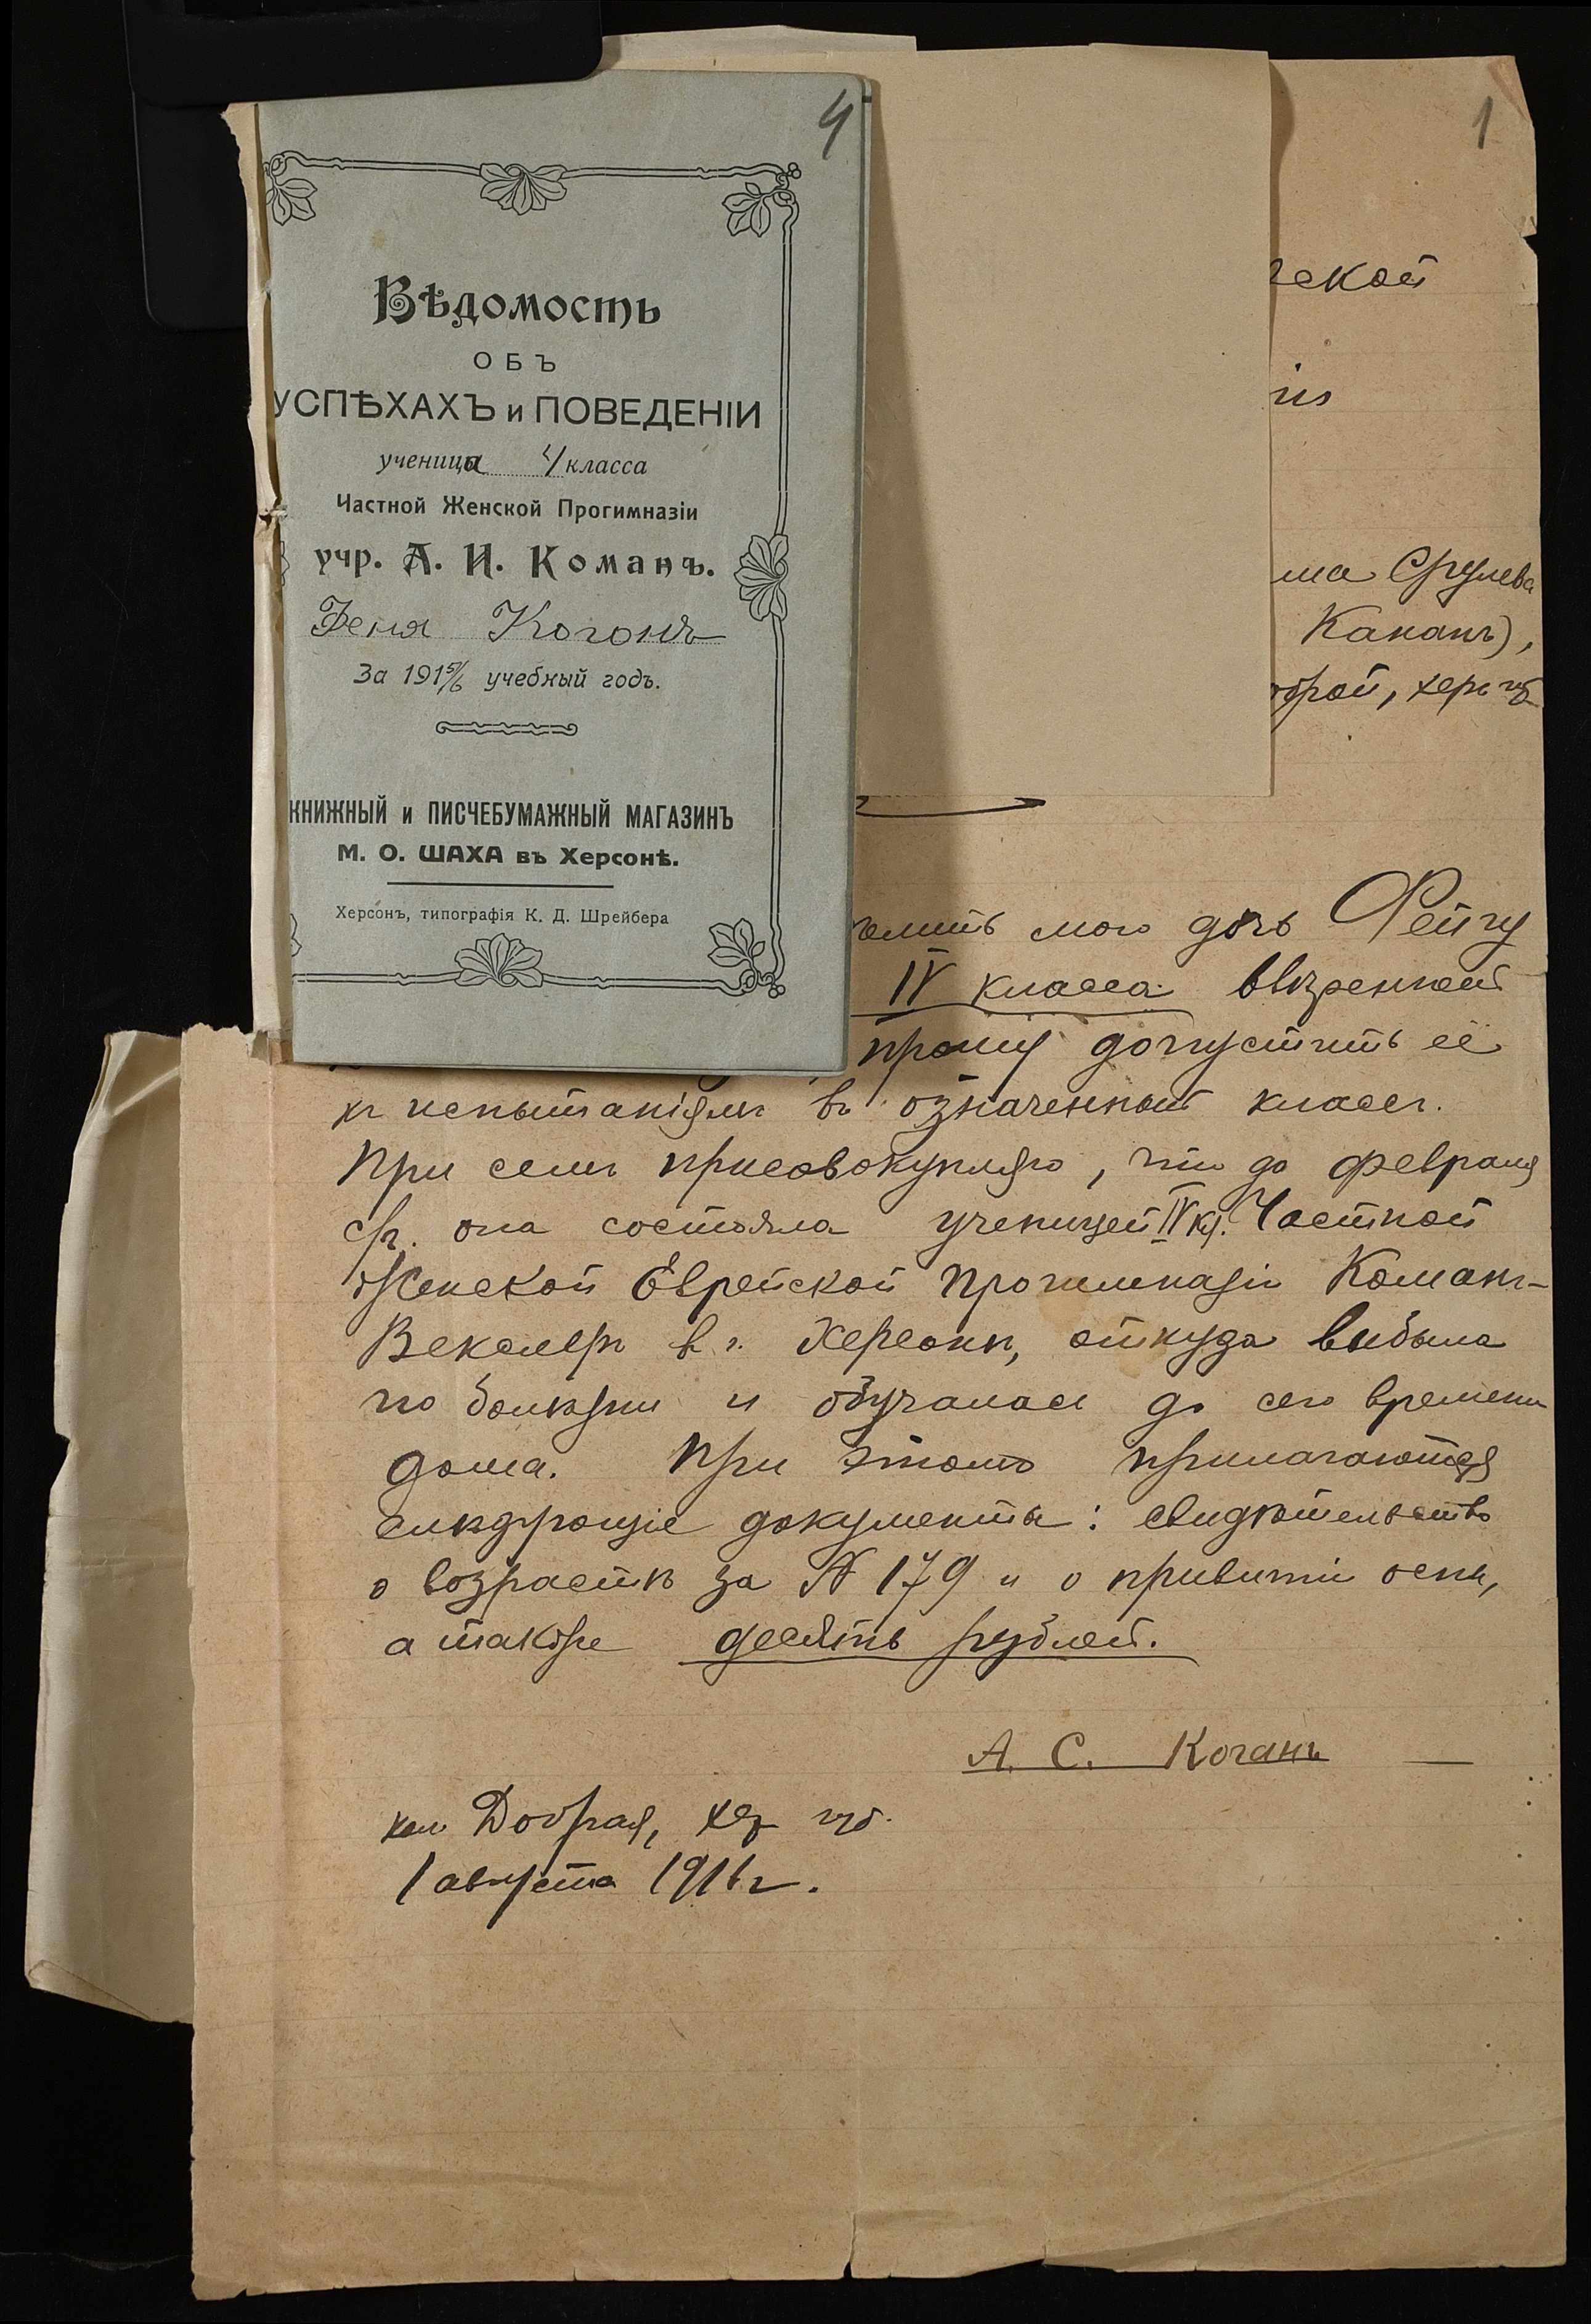 4
Вѣдомость
ОБЪ
УСПѢХАХЪ и ПОВЕДЕНІИ
ученица 4 класса
Частной Женской Прогимназіи
учр. А. И. Команъ.
Феня Когонъ
За 1915/6 учебный годъ.
КНИЖНЫЙ и ПИСЧЕБУМАЖНЫЙ МАГАЗИНЪ
М. О. ШАХА въ Херсонѣ.
Херсонъ, типографія К. Д. Шрейбера
1
ской
ма Срулева
оброй, херс губ
мою дочь Фейгу
IV класса ввѣренной
прошу допустить её
къ испытаніямъ въ означенный классъ.
При семъ присовокупляю, что до февраля
с/г. она состояла ученицей IV кл. Частной
Женской Еврейской Прогимназіи Команъ-
Векслеръ в г. Херсонѣ, откуда выбыла
по болѣзни и обучалась до сего времени
дома. При этомъ прилагаются
слѣдующіе документы: свидѣтельство
о возрастѣ за № 179 и о привитіи оспы,
а также десять рублей.
А. С. Коганъ
кол Добрая, хер губ.
1 августа 1916 г.